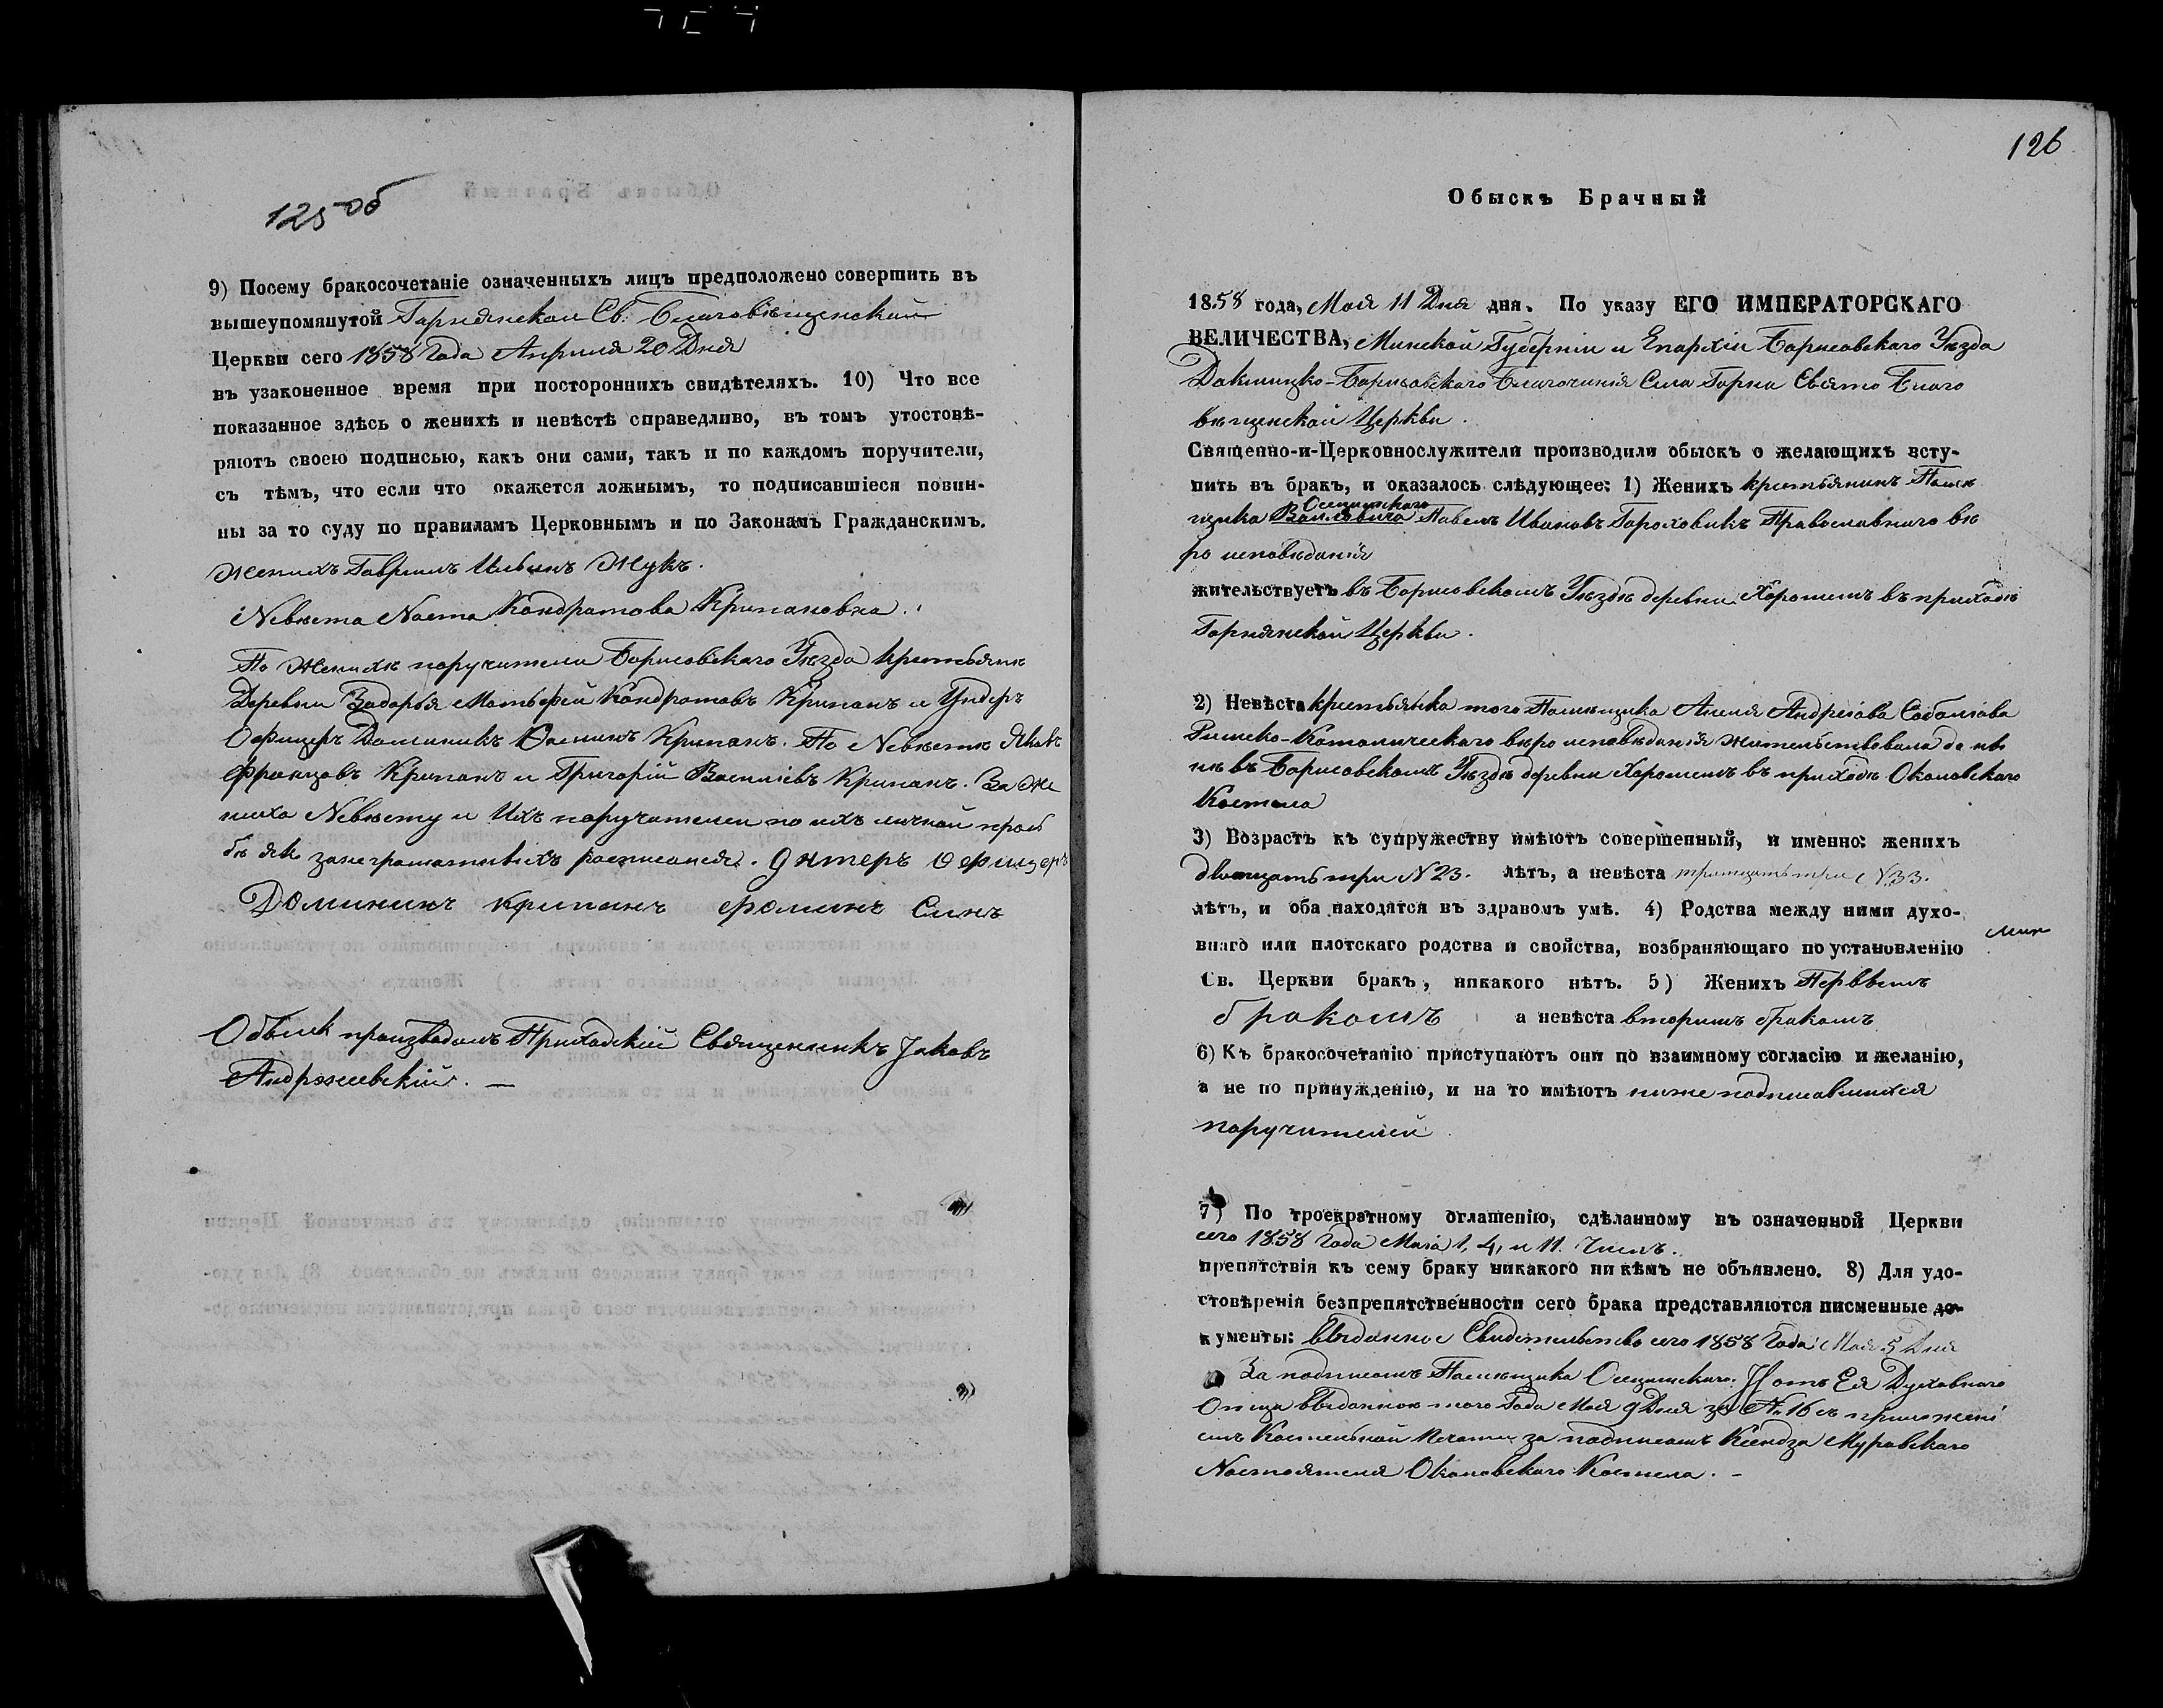 125 об
9) Посему бракосочетаніе означенныхъ лицъ предположено совершить въ
вышеупомянутой Горнянской Св: Благовѣщенской
Церкви сего 1858 Года Апрыля 20 Дня
въ узаконенное время при постороннихъ свидѣтеляхъ. 10) Что все
показанное здѣсь о женихѣ и невѣстѣ справедливо, въ томъ утостовѣ-
ряютъ своею подписью, какъ они сами, такъ и по каждомъ поручители,
съ тѣмъ, что если что окажется ложнымъ, то подписавшіеся повин-
ны за то суду по правиламъ Церковнымъ и по Законамъ Гражданскимъ.
Женихъ Гаврыилъ Ильинъ Жукъ.
Невѣста Наста Кондратова Крипановна.
По Женихѣ поручители Борисовскаго Уѣзда крестьяне
Деревни Задорья Матьфей Кондратовъ Крипанъ и Ундеръ
Офицеръ Доминикъ Фоминъ Крипанъ. По Невѣстѣ Яковъ
Францовъ Крипанъ и Григорій Василіевъ Крипанъ. За Же
ниха Невѣсту и Ихъ поручителей по ихъ личной прозь
бѣ яко неграматныхъ росписался. Унтеръ Офицеръ
Доминикъ крипанъ фоминъ Синъ
Обыск производилъ Приходскій Священникъ Іаковъ
Андржеевскій. —
126
Обыскъ Брачный
1858 года, Мая 11 Дня дня. По указу ЕГО ИМПЕРАТОРСКАГО
ВЕЛИЧЕСТВА, Минской Губерніи и Епархіи Борисовскаго Уѣзда
Докшицко-Борисовскаго Благочинія Села Горна Свято Благо
вѣщенской Церкви.
Священно-и-Церковнослужители производили обыскъ о желающихъ всту-
пить въ бракъ, и оказалось слѣдующее: 1) Женихъ крестьянинъ Помѣ
Осецимскаго
щика Воиловича Павелъ Ивановъ Гороховикъ Православнаго вѣ
ро исповѣданія
жительствуетъ въ Борисовскомъ Уѣздѣ деревни Хорошемъ въ приходѣ
Горнянской Церкви.
2) Невѣста крестьянка того Помѣщика Анеля Андреіова Соболіова
Римско-Католическаго вѣро исповѣданія жительствовала до ны
нѣ въ Борисовскомъ Уѣздѣ деревни Хорошемъ въ приходѣ Околовскаго
Костела
3) Возрастъ къ супружеству имѣютъ совершенный, и именно: женихъ
двацать три N 23. лѣтъ, а невѣста трыцать три N 33.
лѣтъ, и оба находятся въ здравомъ умѣ. 4) Родства между ними духо-
внаго или плотскаго родства и свойства, возбраняющаго по установленію
Св. Церкви бракъ, никакого нѣтъ. 5) Женихъ Первымъ
бракомъ а невѣста вторимъ бракомъ
6) Къ бракосочетанію приступаютъ они по взаимному согласію и желанію,
а не по принужденію, и на то имѣютъ ниже подписавшихся
поручителей.
7) По троекратному оглашенію, сдѣланному въ означенной Церкви
сего 1858 Года Маіа 1, 4, и 11. Числъ.
препятствія къ сему браку никакого ни кѣмъ не объявлено. 8) Для удо-
стовѣренія безпрепятственности сего брака представляются писменные до-
кументы: выданное Свидетельство сего 1858 Года Мая 5 Дня
За подписомъ Помѣщика Осецимскаго. И отъ Ея Духовнаго
Отца выданною того Года Мая 9 Дня за № 16 съ приложені
емъ Костельной Печати за подписомъ Ксендза Муравскаго
Настоятеля Околовскаго Костела. –